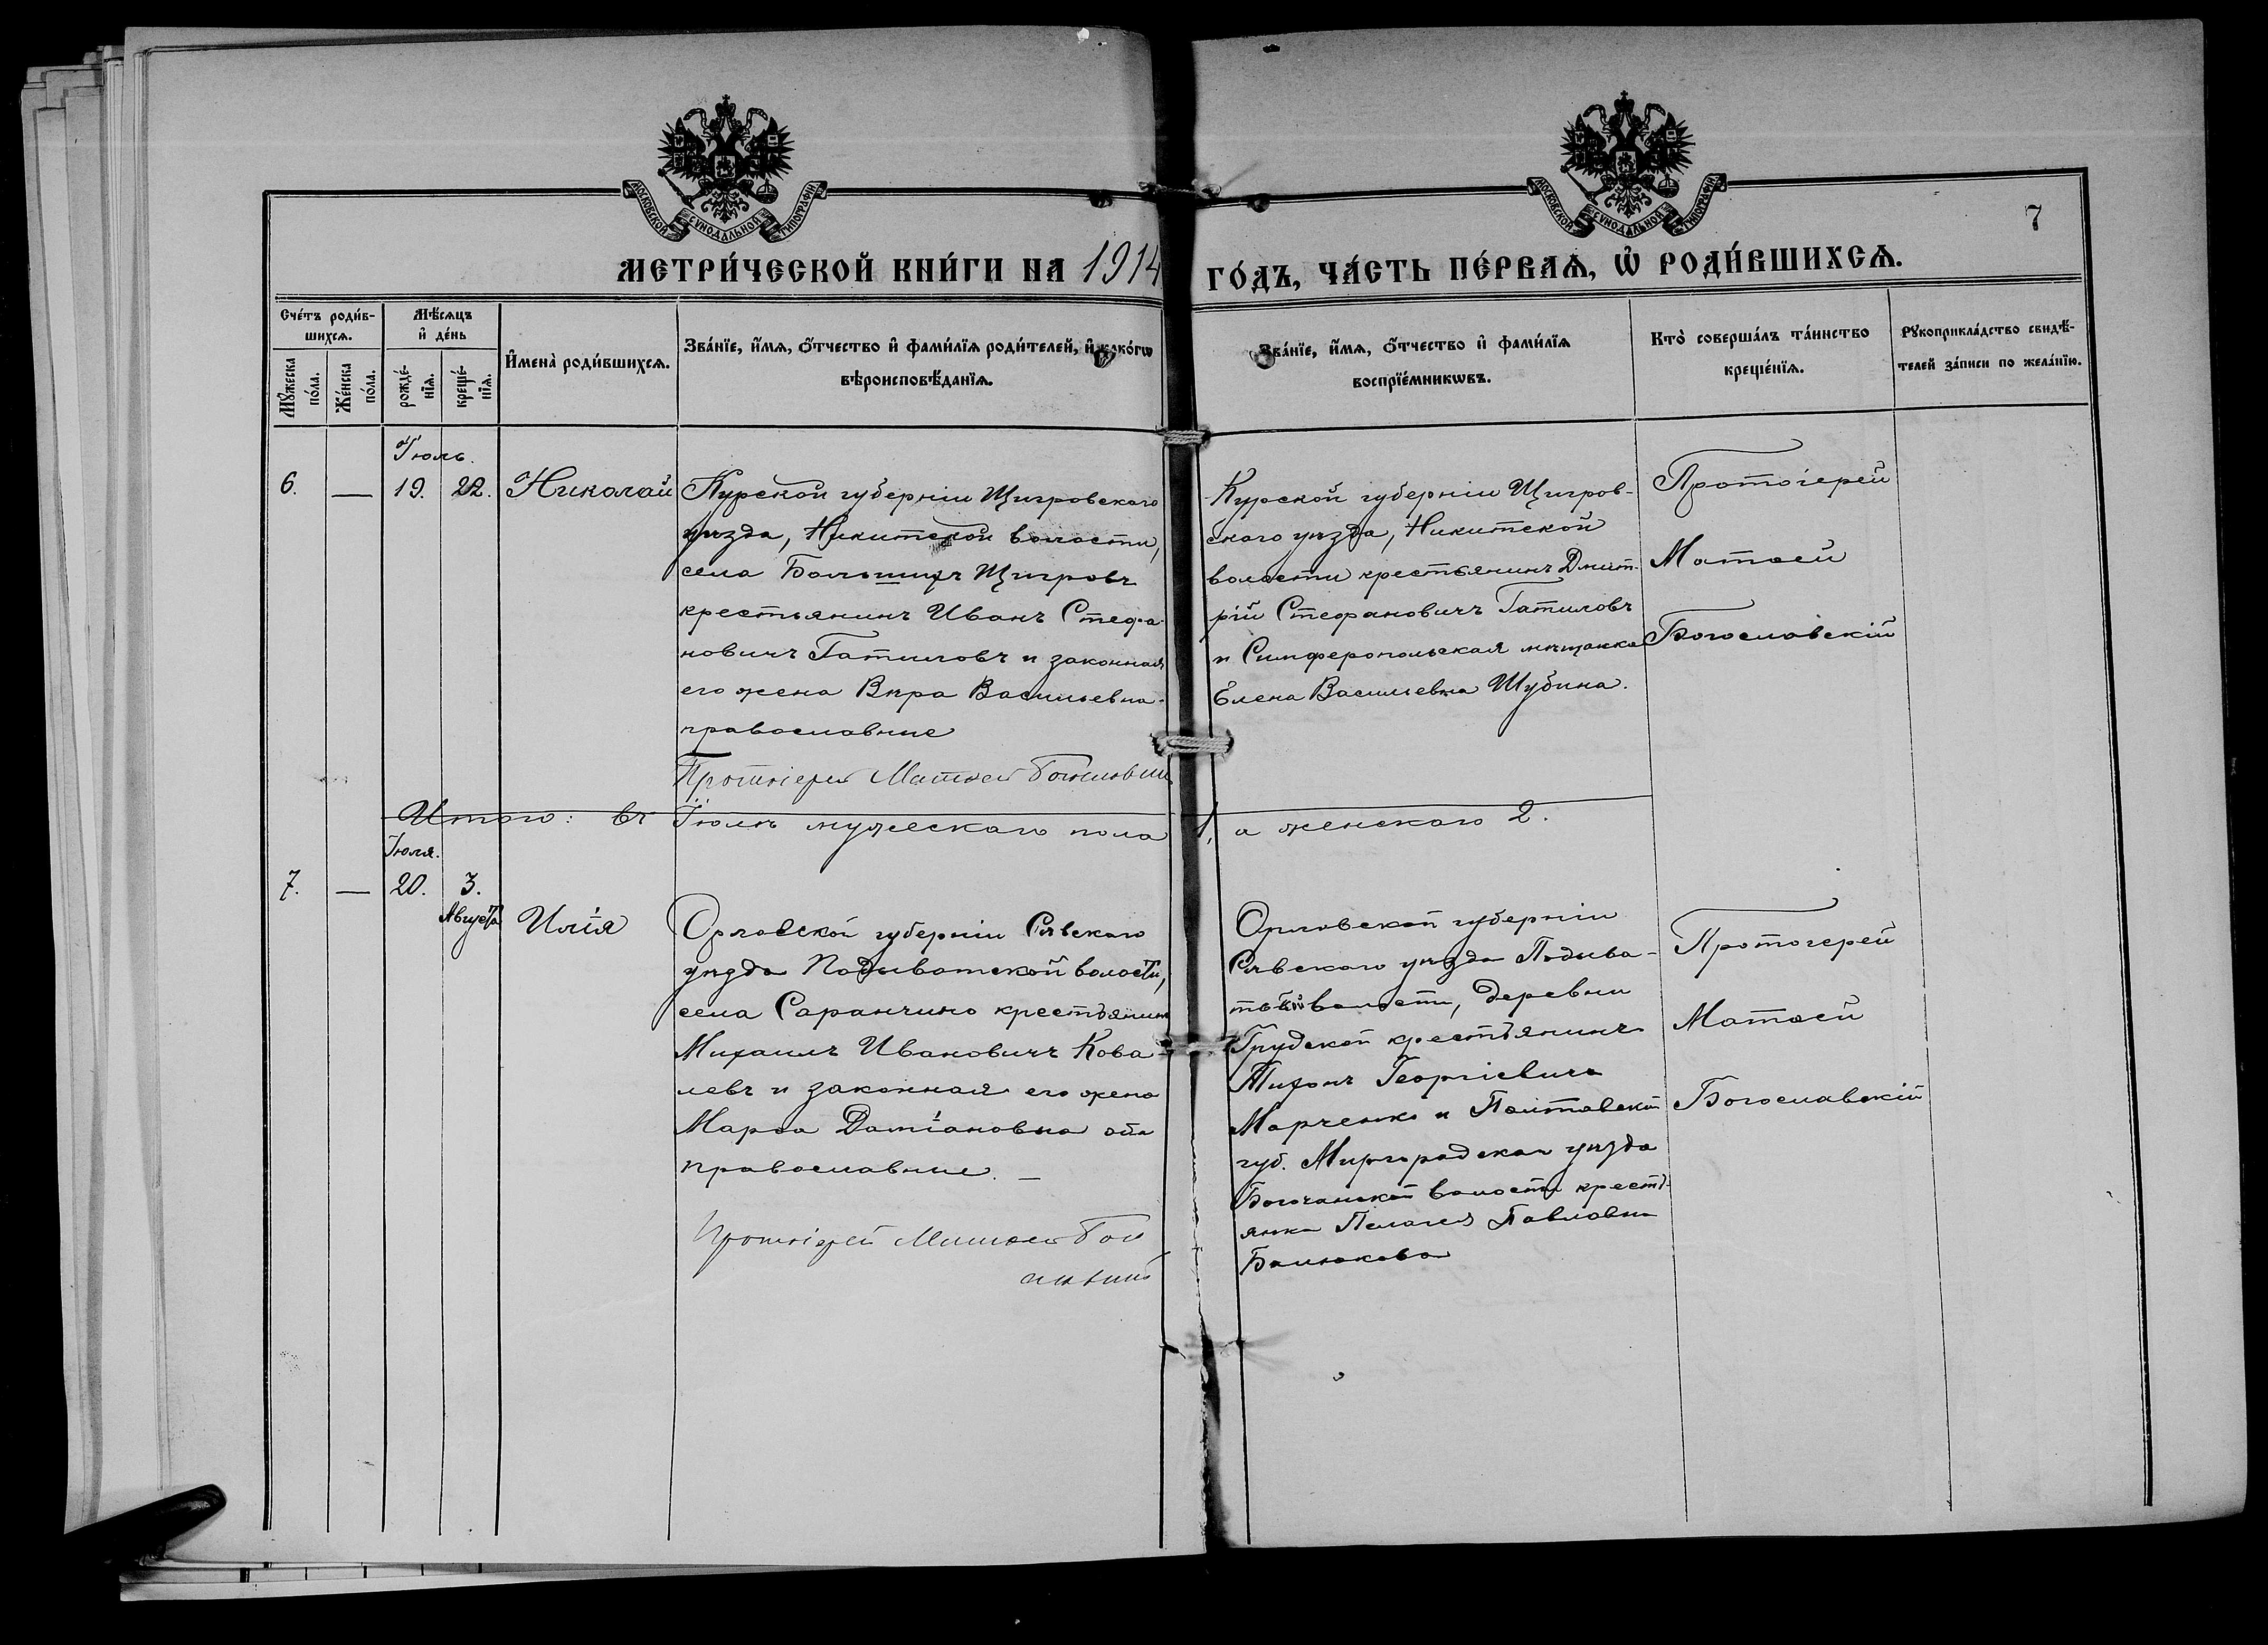 МОСКОВСКОЙ СУНОДАЛЬНОЙ ТИПОГРАФІИ
МОСКОВСКОЙ СУНОДАЛЬНОЙ ТИПОГРАФІИ
7
МЕТРИ́ЧЕСКОЙ КНИ́ГИ НА 1914 ГО́ДЪ, ЧА́СТЬ ПЕ́РВАѦ, Ѡ РОДИ́ВШИХСѦ.
Сче́тъ роди́в-
шихсѧ.
Мꙋжеска
по́ла.
Же́нска
по́ла.
Мѣ́сѧцъ
и҆ де́нь
рожде́-
нїѧ.
креще́-
нїѧ.
И҆мена̀ роди́вшихсѧ.
Зва́нїе, и҆́мѧ, ѻ҆́тчество и҆ фами́лїѧ роди́телей, и҆ како́гѡ
вѣроисповѣ́данїѧ.
Зва́нїе, и҆́мѧ, ѻ҆́тчество и҆ фами́лїѧ
воспрїе́мникѡвъ.
Кто̀ соверша́лъ та́инство
креще́нїѧ.
Рꙋкоприкла́дство свидѣ́-
телей за́писи по жела́нїю.
Іюль.
6. — 19. 22. Николай
Курской губерніи Щигровскаго
уѣзда, Никитской волости,
села Большихъ Щигровъ
крестьянинъ Иванъ Стефа-
новичъ Гатиловъ и законная
его жена Вѣра Васильевна-
православные
Протоіерей Матѳей Богословскій
Курской губерніи Щигров-
скаго уѣзда, Никитской
волости крестьянинъ Дмит-
рій Стефановичъ Гатиловъ
и Симферопольская мѣщанка
Елена Васильевна Шубина.
Протоіерей
Матѳей
Богословскій
Итого: въ Іюлѣ мужескаго пола 1, а женскаго 2.
Іюля.
7. — 20. 3.
Августа
Илія
Орловской губерніи Сѣвскаго
уѣзда Подыватской волости,
села Саранчино крестьянинъ
Михаилъ Ивановичъ Кова-
левъ и законная его жена
Марѳа Даміановна оба
православные. —
Протоіерей Матѳей Бого
Орловской губерніи
Сѣвскаго уѣзда Подыва-
тской волости, деревни
Грудской крестьянинъ
Тихонъ Георгіевичъ
Марченко и Полтавской
губ. Миргородскаго уѣзда
волости кресть-
янка Пелагея Павловна
Протоіерей
Матѳей
Богославскій